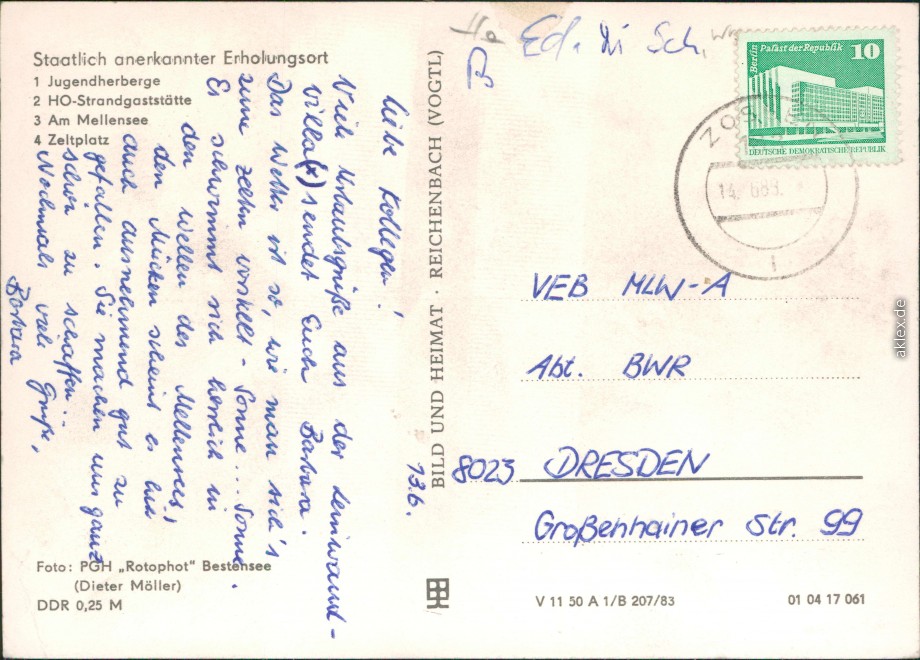 Staatlich anerkannter Erholungsort
1 Jugendherberge
2 HO-Strandgaststätte
3 Am Mellensee
4 Zeltplatz
13.6.
Liebe Kollegen!
Viele Urlaubsgrüße aus der Leinwand-
villa(x) sendet Euch Barbara.
Das Wetter ist so, wie man sich's
zum Zelten vorstellt - Sonne... Sonne.
Es schwimmt sich herrlich in
den Wellen des Mellensees,
den Mücken scheint es hier
auch ausnehmend gut zu
gefallen. Sie machen uns ganz
schön zu schaffen.
Nochmals viele Grüße,
Barbara
Foto: PGH „Rotophot" Bestensee
(Dieter Möller)
DDR 0,25 M
BILD UND HEIMAT · REICHENBACH (VOGTL)
Ed.
Sch.
Berlin Palast der Republik
10
DEUTSCHE DEMOKRATISCHE REPUBLIK
ZOS
VEB MLW-A
Abt. BWR
8023 DRESDEN
Großenhainer Str. 99
V 11 50 A 1/B 207/83
01 04 17 061
aklex.de